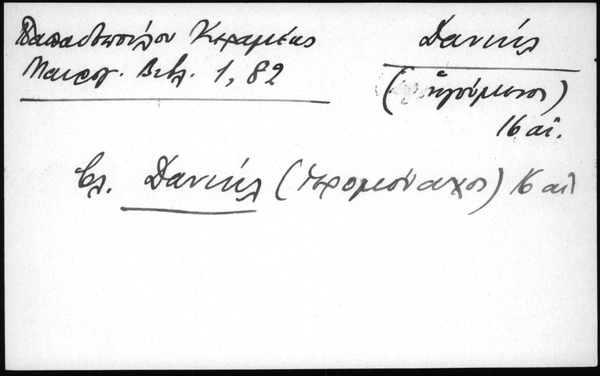 Παπαδοπούλου Κεραμέως
Μαυρογ. Βιβλ. 1, 82
Δανιήλ
(ἡγούμενος)
16 αἰ.
βλ. Δανιήλ (ἱερομόναχος) 16 αἰ